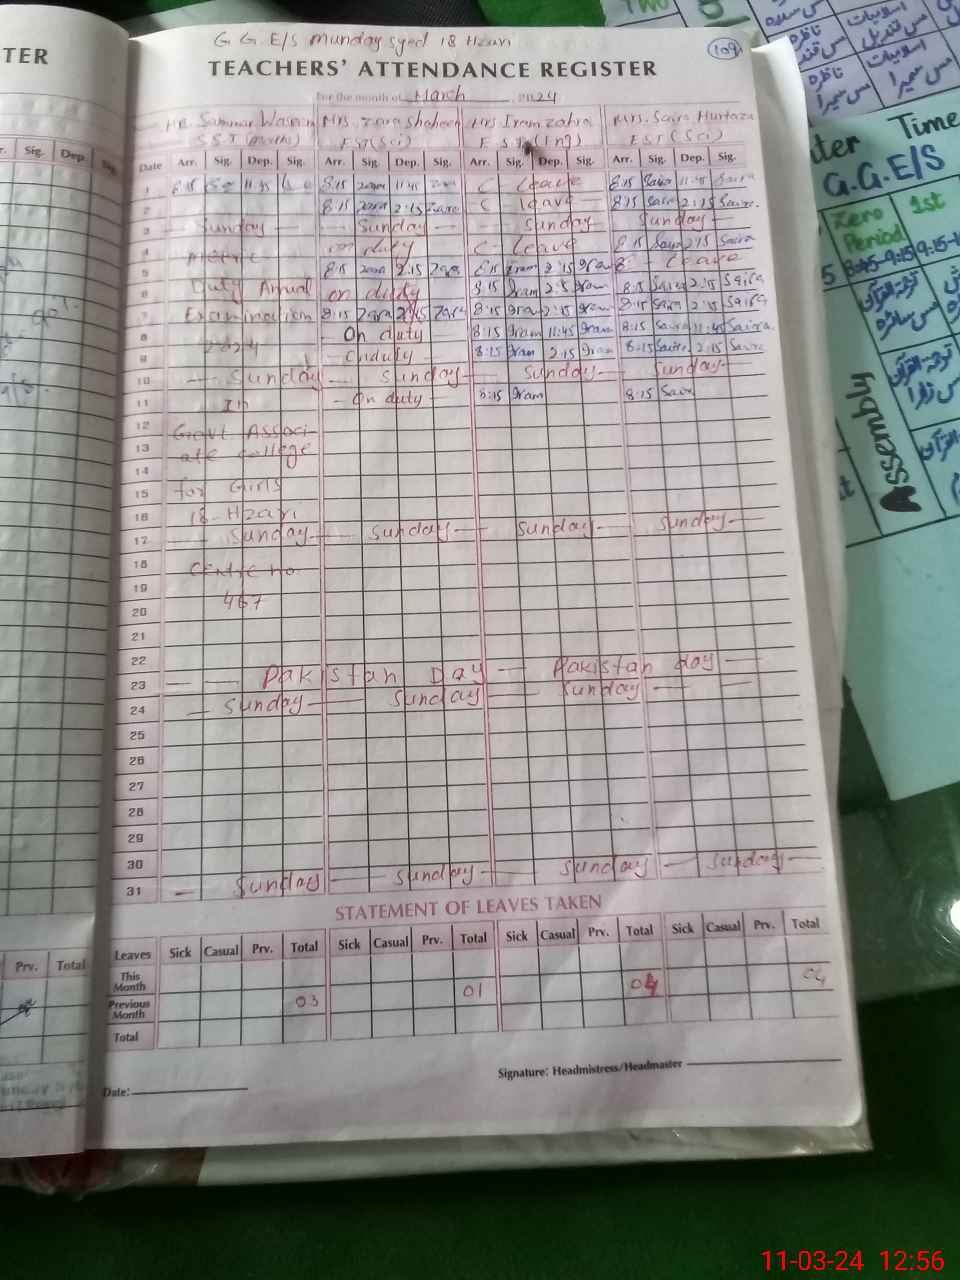 TER
G G E/S Munday Syed 18 Hzari
109
TEACHERS' ATTENDANCE REGISTER
For the month of March 2024
Mrs. Zara Shaheen Mrs Iram Zahra Mrs. Saira Murtaza
S.S.T EST (Sci) E S T (Eng) EST (Sci)
Date Arr. Sig. Dep. Sig. Arr. Sig. Dep. Sig. Arr. Sig. Dep. Sig. Arr. Sig. Dep. Sig.
1 8:15 11:45 8:15 zara 11:45 C Leave 8:15 Saira 11:45 Saira
2 8:15 zara 2:15 Zara C leave 8:15 Saira 2:15 Saira
3 Sunday Sunday Sunday Sunday
4 Metric on duty C-Leave 8:15 Saira 2:15 Saira
5 8:15 zara 2:15 Zara 8:15 Iram 2:15 Iram Leave
6 Duty Annual on duty 8:15 Iram 2:15 Iram 8:15 Saira 2:15 Saira
7 Examination 8:15 Zara 2:15 Zara 8:15 Iram 2:15 Iram 8:15 Saira 2:15 Saira
8 On duty 8:15 Iram 11:45 Iram 8:15 Saira 11:45 Saira
9 2024 On duty 8:15 Iram 2:15 Iram 8:15 Saira 2:15 Saira
10 Sunday Sunday Sunday Sunday
11 In On duty 8:15 Iram 8:15 Saira
12 Govt Associ-
13 ate college
14
15 for Girls
16 18-Hzari
17 Sunday Sunday Sunday Sunday
18 Centre no.
19
20 467
21
22
23 Pakistan Day Pakistan day
24 Sunday Sunday Sunday
25
26
27
28
29
30
31 Sunday Sunday Sunday Sunday
STATEMENT OF LEAVES TAKEN
Leaves Sick Casual Prv. Total Sick Casual Prv. Total Sick Casual Prv. Total Sick Casual Prv. Total
This Month
Previous Month 03 01 04 04
Total
Date:
Signature: Headmistress/Headmaster
Sig. Dep. Sig.
Prv. Total
Time
G.G.E/S
Zero Period 1st
8:45-9:15
Assembly
11-03-24 12:56